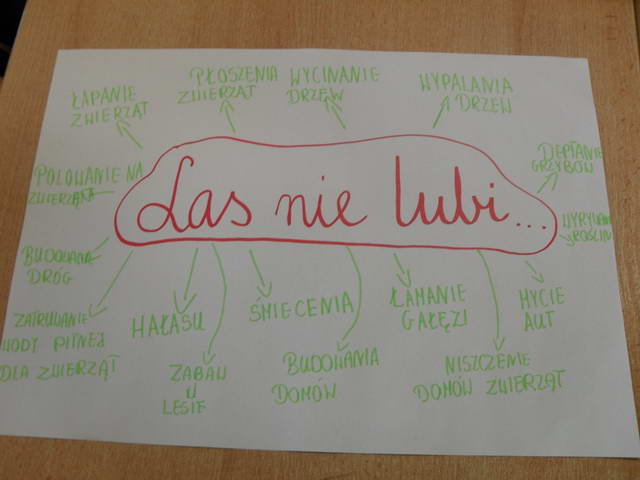 ŁAPANIE
ZWIERZĄT
PŁOSZENIA
ZWIERZĄT
WYCINANIE
DRZEW
WYPALANIA
DRZEW
POLOWANIE NA
ZWIERZĘTA
Las nie lubi...
DEPTANIE
GRZYBÓW
WYRYWANIE
ROŚLIN
BUDOWANIA
DRÓG
ZATRUWANIE
WODY PITNEJ
DLA ZWIERZĄT
HAŁASU
ZABAW
W
LESIE
ŚMIECENIA
BUDOWANIA
DOMÓW
ŁAMANIE
GAŁĘZI
NISZCZENIE
DOMÓW ZWIERZĄT
MYCIE
AUT